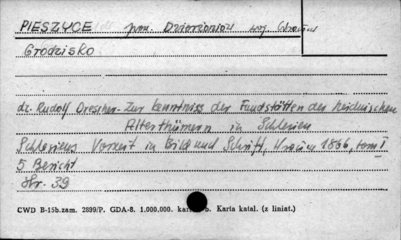 PIESZYCE pow. Dzierżoniów woj. Wrocław
Grodzisko
dr. Rudolf Drescher - Zur Kenntniss der Fundstätten der heidnischen
Alterthümern in Schlesien
Schlesiens Vorzeit in Bild und Schrift, Wrocław 1866, tom I
5 Bericht
Str. 39
CWD B-15b.zam. 2899/P. GDA-8. 1.000.000. Karta katal. (z liniat.)